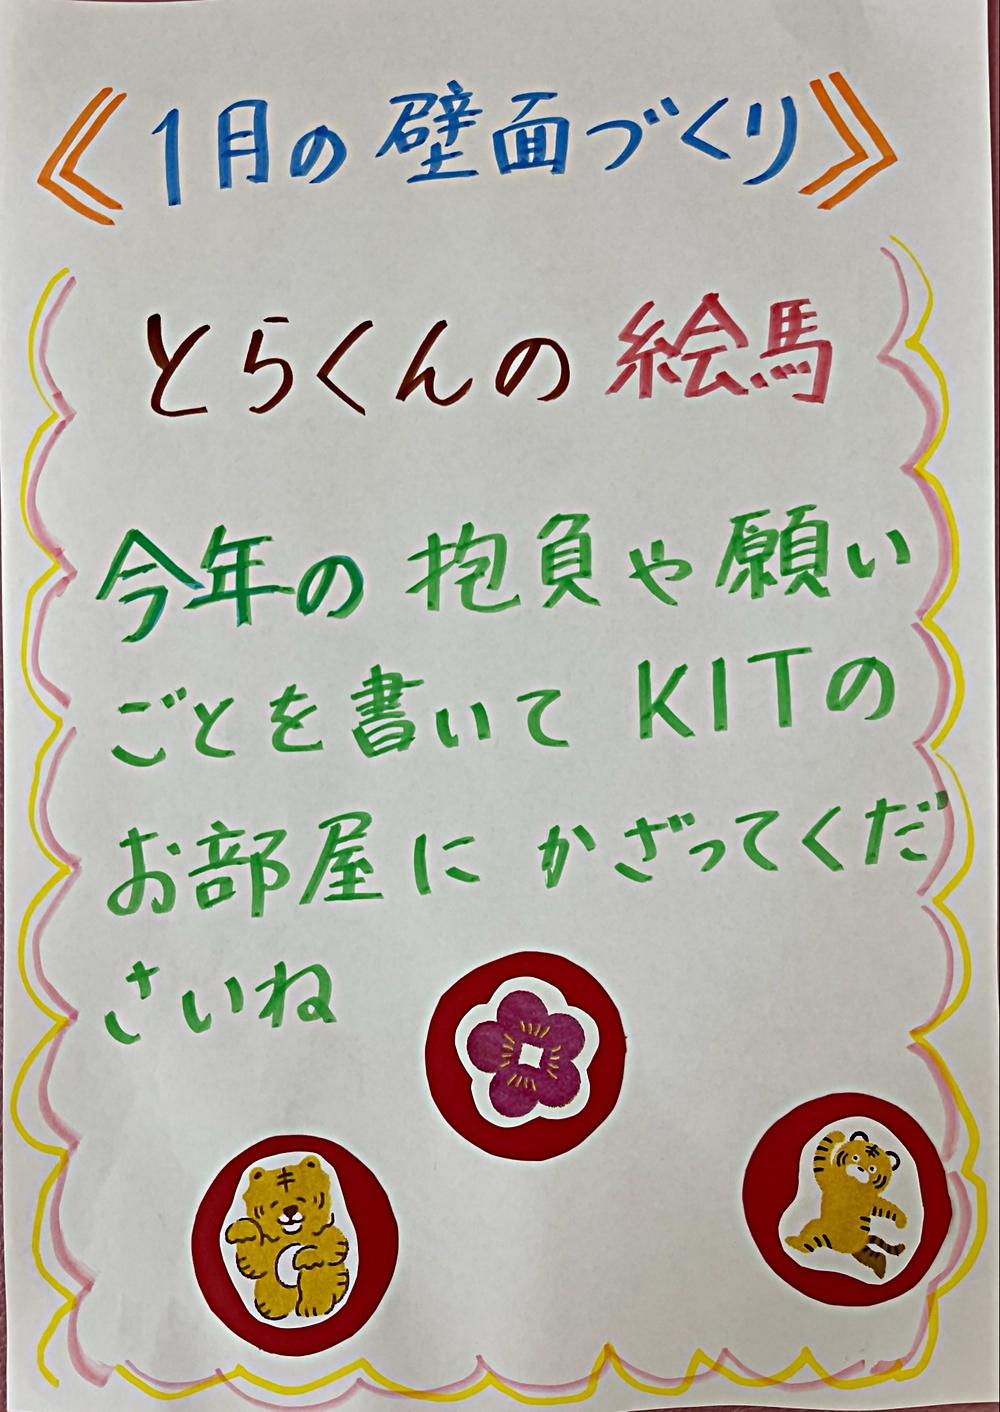 《1月の壁面づくり》
とらくんの絵馬
今年の抱負や願い
ごとを書いて KITの
お部屋に かざってくだ
さいね